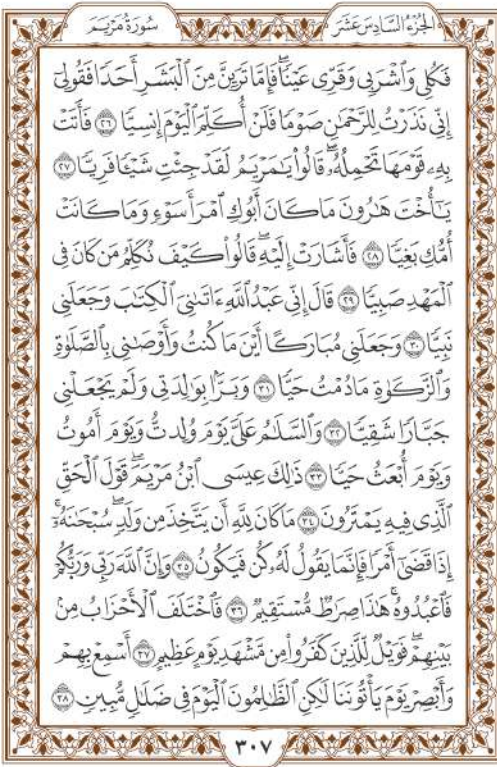 الجُزْءُ السَّادِسَ عَشَرَ سُورَةُ مَرْيَمَ
فَكُلِى وَٱشْرَبِى وَقَرِّى عَيْنًاۖ فَإِمَّا تَرَيِنَّ مِنَ ٱلْبَشَرِ أَحَدًا فَقُولِىٓ
إِنِّى نَذَرْتُ لِلرَّحْمَٰنِ صَوْمًا فَلَنْ أُكَلِّمَ ٱلْيَوْمَ إِنسِيًّا ٢٦ فَأَتَتْ
بِهِۦ قَوْمَهَا تَحْمِلُهُۥۖ قَالُوا۟ يَٰمَرْيَمُ لَقَدْ جِئْتِ شَيْـًٔا فَرِيًّا ٢٧
يَٰٓأُخْتَ هَٰرُونَ مَا كَانَ أَبُوكِ ٱمْرَأَ سَوْءٍ وَمَا كَانَتْ
أُمُّكِ بَغِيًّا ٢٨ فَأَشَارَتْ إِلَيْهِۖ قَالُوا۟ كَيْفَ نُكَلِّمُ مَن كَانَ فِى
ٱلْمَهْدِ صَبِيًّا ٢٩ قَالَ إِنِّى عَبْدُ ٱللَّهِ ءَاتَىٰنِىَ ٱلْكِتَٰبَ وَجَعَلَنِى
نَبِيًّا ٣٠ وَجَعَلَنِى مُبَارَكًا أَيْنَ مَا كُنتُ وَأَوْصَٰنِى بِٱلصَّلَوٰةِ
وَٱلزَّكَوٰةِ مَا دُمْتُ حَيًّا ٣١ وَبَرًّۢا بِوَٰلِدَتِى وَلَمْ يَجْعَلْنِى
جَبَّارًا شَقِيًّا ٣٢ وَٱلسَّلَٰمُ عَلَىَّ يَوْمَ وُلِدتُّ وَيَوْمَ أَمُوتُ
وَيَوْمَ أُبْعَثُ حَيًّا ٣٣ ذَٰلِكَ عِيسَى ٱبْنُ مَرْيَمَۚ قَوْلَ ٱلْحَقِّ
ٱلَّذِى فِيهِ يَمْتَرُونَ ٣٤ مَا كَانَ لِلَّهِ أَن يَتَّخِذَ مِن وَلَدٍۖ سُبْحَٰنَهُۥٓۚ
إِذَا قَضَىٰٓ أَمْرًا فَإِنَّمَا يَقُولُ لَهُۥ كُن فَيَكُونُ ٣٥ وَإِنَّ ٱللَّهَ رَبِّى وَرَبُّكُمْ
فَٱعْبُدُوهُۚ هَٰذَا صِرَٰطٌ مُّسْتَقِيمٌ ٣٦ فَٱخْتَلَفَ ٱلْأَحْزَابُ مِنۢ
بَيْنِهِمْۖ فَوَيْلٌ لِّلَّذِينَ كَفَرُوا۟ مِن مَّشْهَدِ يَوْمٍ عَظِيمٍ ٣٧ أَسْمِعْ بِهِمْ
وَأَبْصِرْ يَوْمَ يَأْتُونَنَا لَٰكِنِ ٱلظَّٰلِمُونَ ٱلْيَوْمَ فِى ضَلَٰلٍ مُّبِينٍ ٣٨
٣٠٧